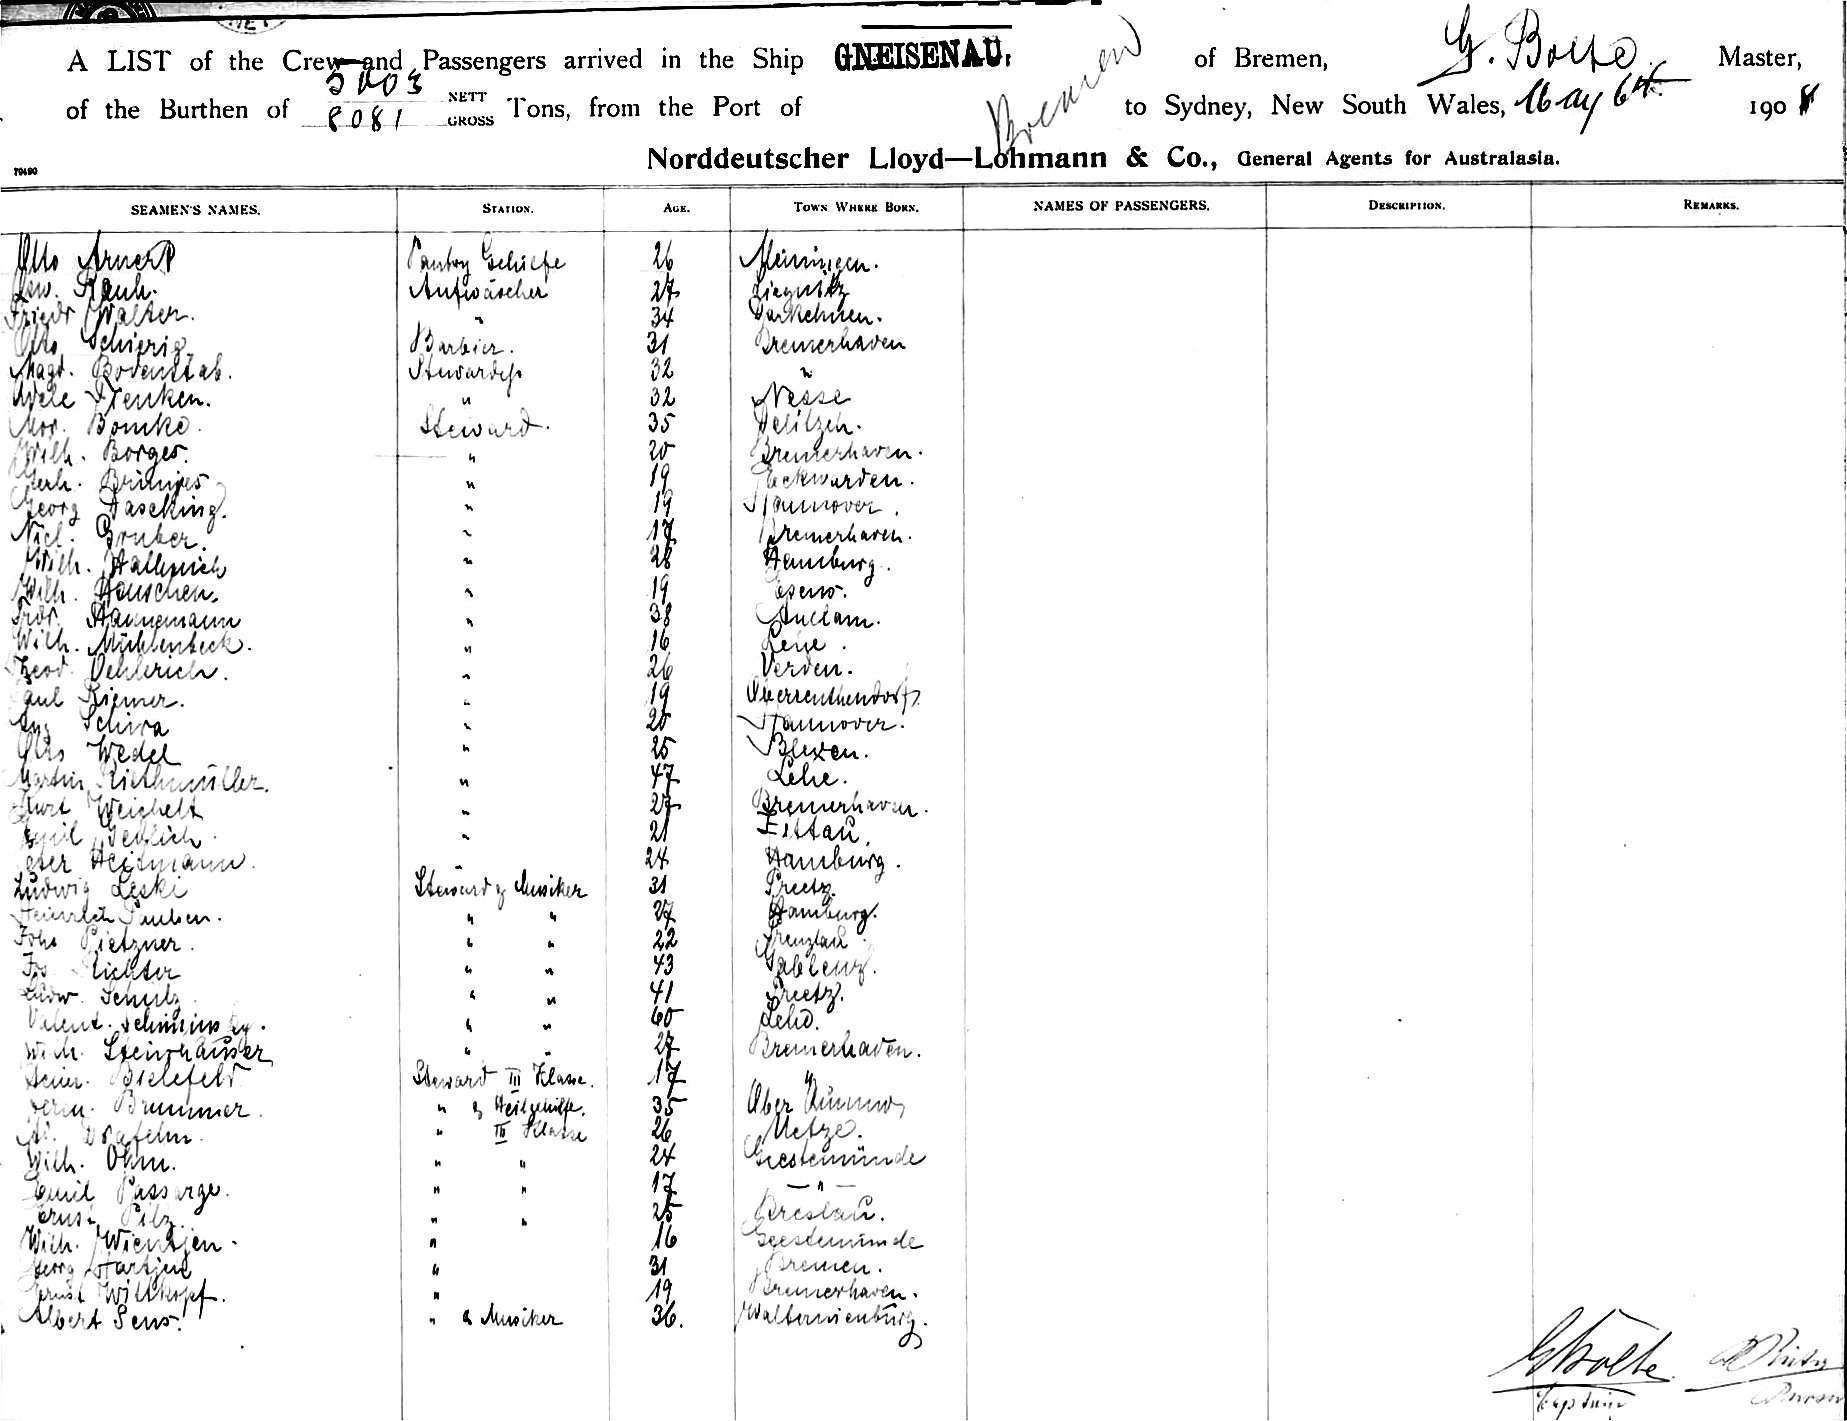 A LIST of the Crew and Passengers arrived in the Ship GNEISENAU, of Bremen, G. Bolte Master,
of the Burthen of 5003 NETT 8081 GROSS Tons, from the Port of Bremen to Sydney, New South Wales, May 6th 1908
Norddeutscher Lloyd—Lohmann & Co., General Agents for Australasia.
70490
SEAMEN'S NAMES. STATION. AGE. TOWN WHERE BORN. NAMES OF PASSENGERS. DESCRIPTION. REMARKS.
Otto Pantry Gehilfe 26 Meiningen.
Rauh. Aufwäscher 27 Liegnitz
Friedr Walter. " 34 Darkehmen.
Otto Schierig Barbier. 31 Bremerhaven
Magd. Bodenstab. Stewardess 32 "
Adele Frenken. " 32 Nesse
Bomke. Steward. 35 Delitzch.
Wilh. Borges. " 20 Bremerhaven.
Gerh. " 19 Eckwarden.
Georg Daseking. " 19 Hannover.
Nicl. Gruber. " 17 Bremerhaven.
Wilh. " 28 Hamburg.
Wilh. " 19 Esens.
Frdr. Hannemann " 38 Anclam.
Wilh. Mühlenbeck. " 16 Lehe.
Theod. Oehlerich. " 26 Verden.
Paul Riemer. " 19
Aug Schira " 20 Hannover.
Otto Wedel " 25 Blexen.
Martin Riethmüller. " 47 Lehe.
Kurt Weichelt " 27 Bremerhaven.
Emil " 21 Zittau.
Peter Heitmann. " 24 Hamburg.
Ludwig Leski Steward & Musiker 31 Preetz.
Heinrich Paulsen. " " 27 Hamburg.
Johs Pietzner. " " 22 Prenzlau.
Jos Richter " " 43 Gablenz.
Ludw. Schulz " " 41 Preetz.
Valent. " " 60 Lehe.
Wilh. Steinhäuser " " 27 Bremerhaven.
Heinr. Bielefeld Steward III Klasse. 17 "
Herm. Brummer. " & Heilgehilfe. 35 Ober
" III Klasse 26 Uetze.
Wilh. Ohm. " " 24 Geestemünde
Emil Passarge. " " 17 — " —
Ernst Pilz. " " 25 Breslau.
Wilh. Wientjen. " 16 Geestemünde
Georg Hartjen " 31 Bremen.
Ernst Wittkopf. " 19 Bremerhaven.
Albert Sens. " & Musiker 36. Walternienburg.
G Bolte
Captain Purser